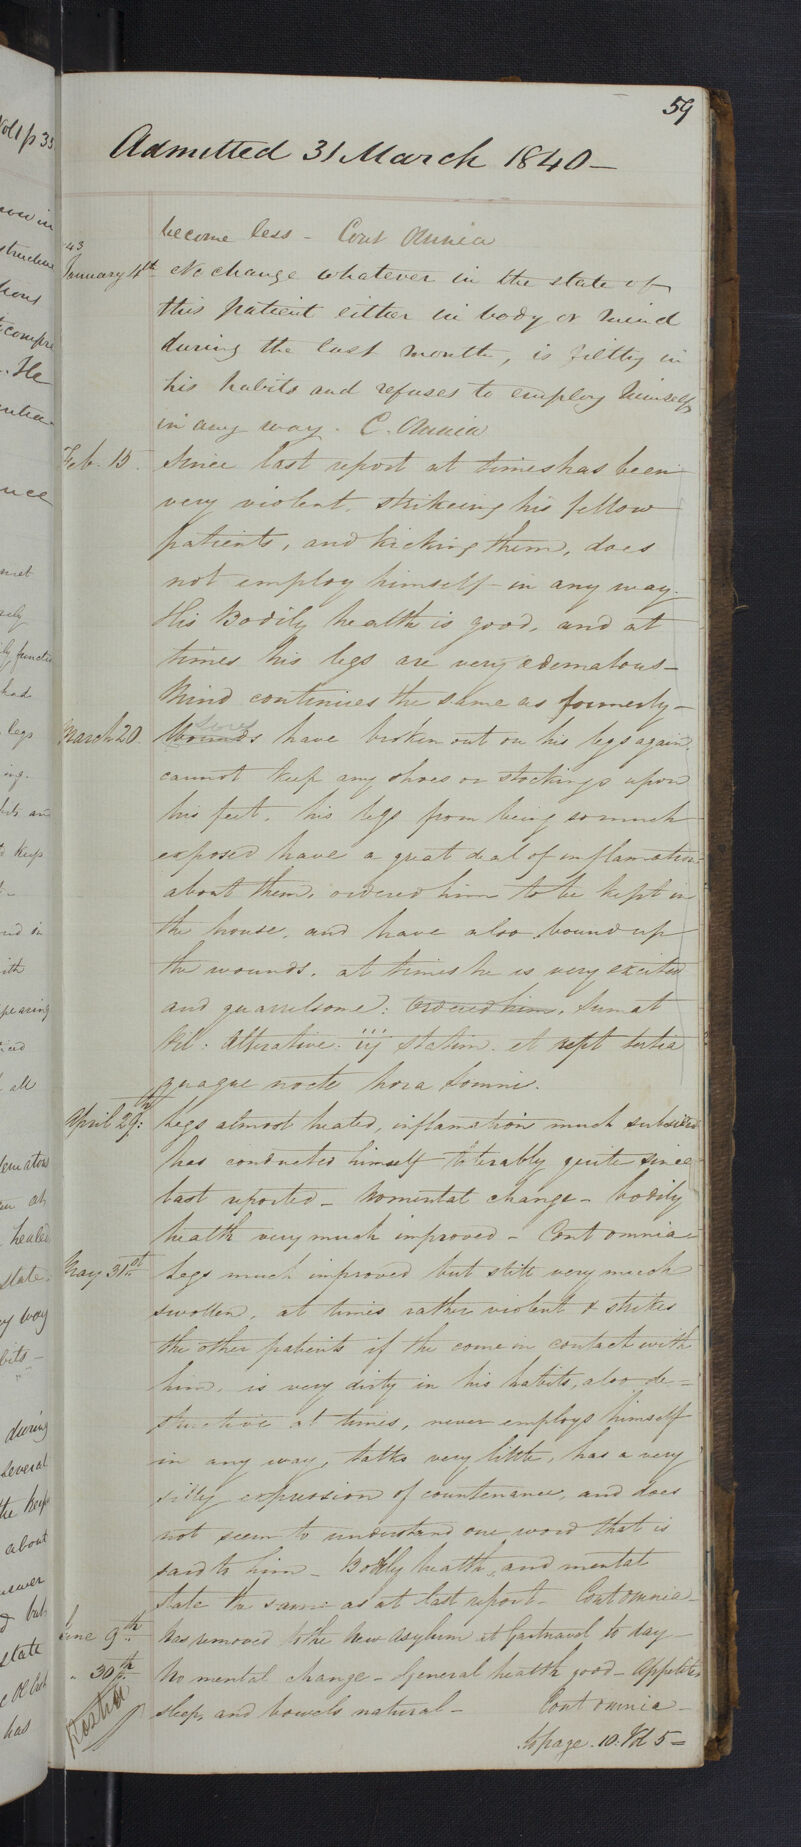 59
Admitted 31 March 1840 —
become less — Cont Omnia
43
January 4th No change whatever in the state of
this patient either in body or mind
during the last month, is filthy in
his habits and refuses to employ himself
in any way. C. Omnia
Feb. 15. Since last report at times has been
very violent, strikeing his fellow
patients, and kicking them, does
not employ himself in any way.
His Bodily health is good, and at
times his legs are very edematous —
Mind continues the same as formerly —
Sores
March 20. Wounds have broken out on his legs again
cannot keep any shoes or stockings upon
his feet, his legs from being so much
exposed have a great deal of inflamation
about them, ordered him to be kept in
the house, and have also bound up
the wounds. at times he is very excited
and quarrelsome: Ordered him, Sumat
Pil: Alterative. iij Statim. et rept tertia
quaque nocte hora Somni.
April 29th: Legs almost healed, inflamation much subsided
has conducted himself tolerably quite since
last reported — No mental change — bodily
health very much improved — Cont omnia —
May 31st Legs much improved but still very much
swollen, at times rather violent & strikes
the other patients if the come in contact with
him, is very dirty in his habits, also de=
structive at times, never employs himself
in any way, talks very little, has a very
silly expression of countenance, and does
not seem to understand one word that is
said to him — Bodily health, and mental
state the same as at last report — Cont omnia —
June 9th Was removed to the New Asylum at Gartnavel to day —
" 30th No mental change — General health good — Appetite,
sleep, and bowels natural — Cont omnia —
to page . 10. Vol 5 =
Vol 1 p 33
He
legs
had
keep
all
healed
state
way
during
several
the keep
about
but
state
has